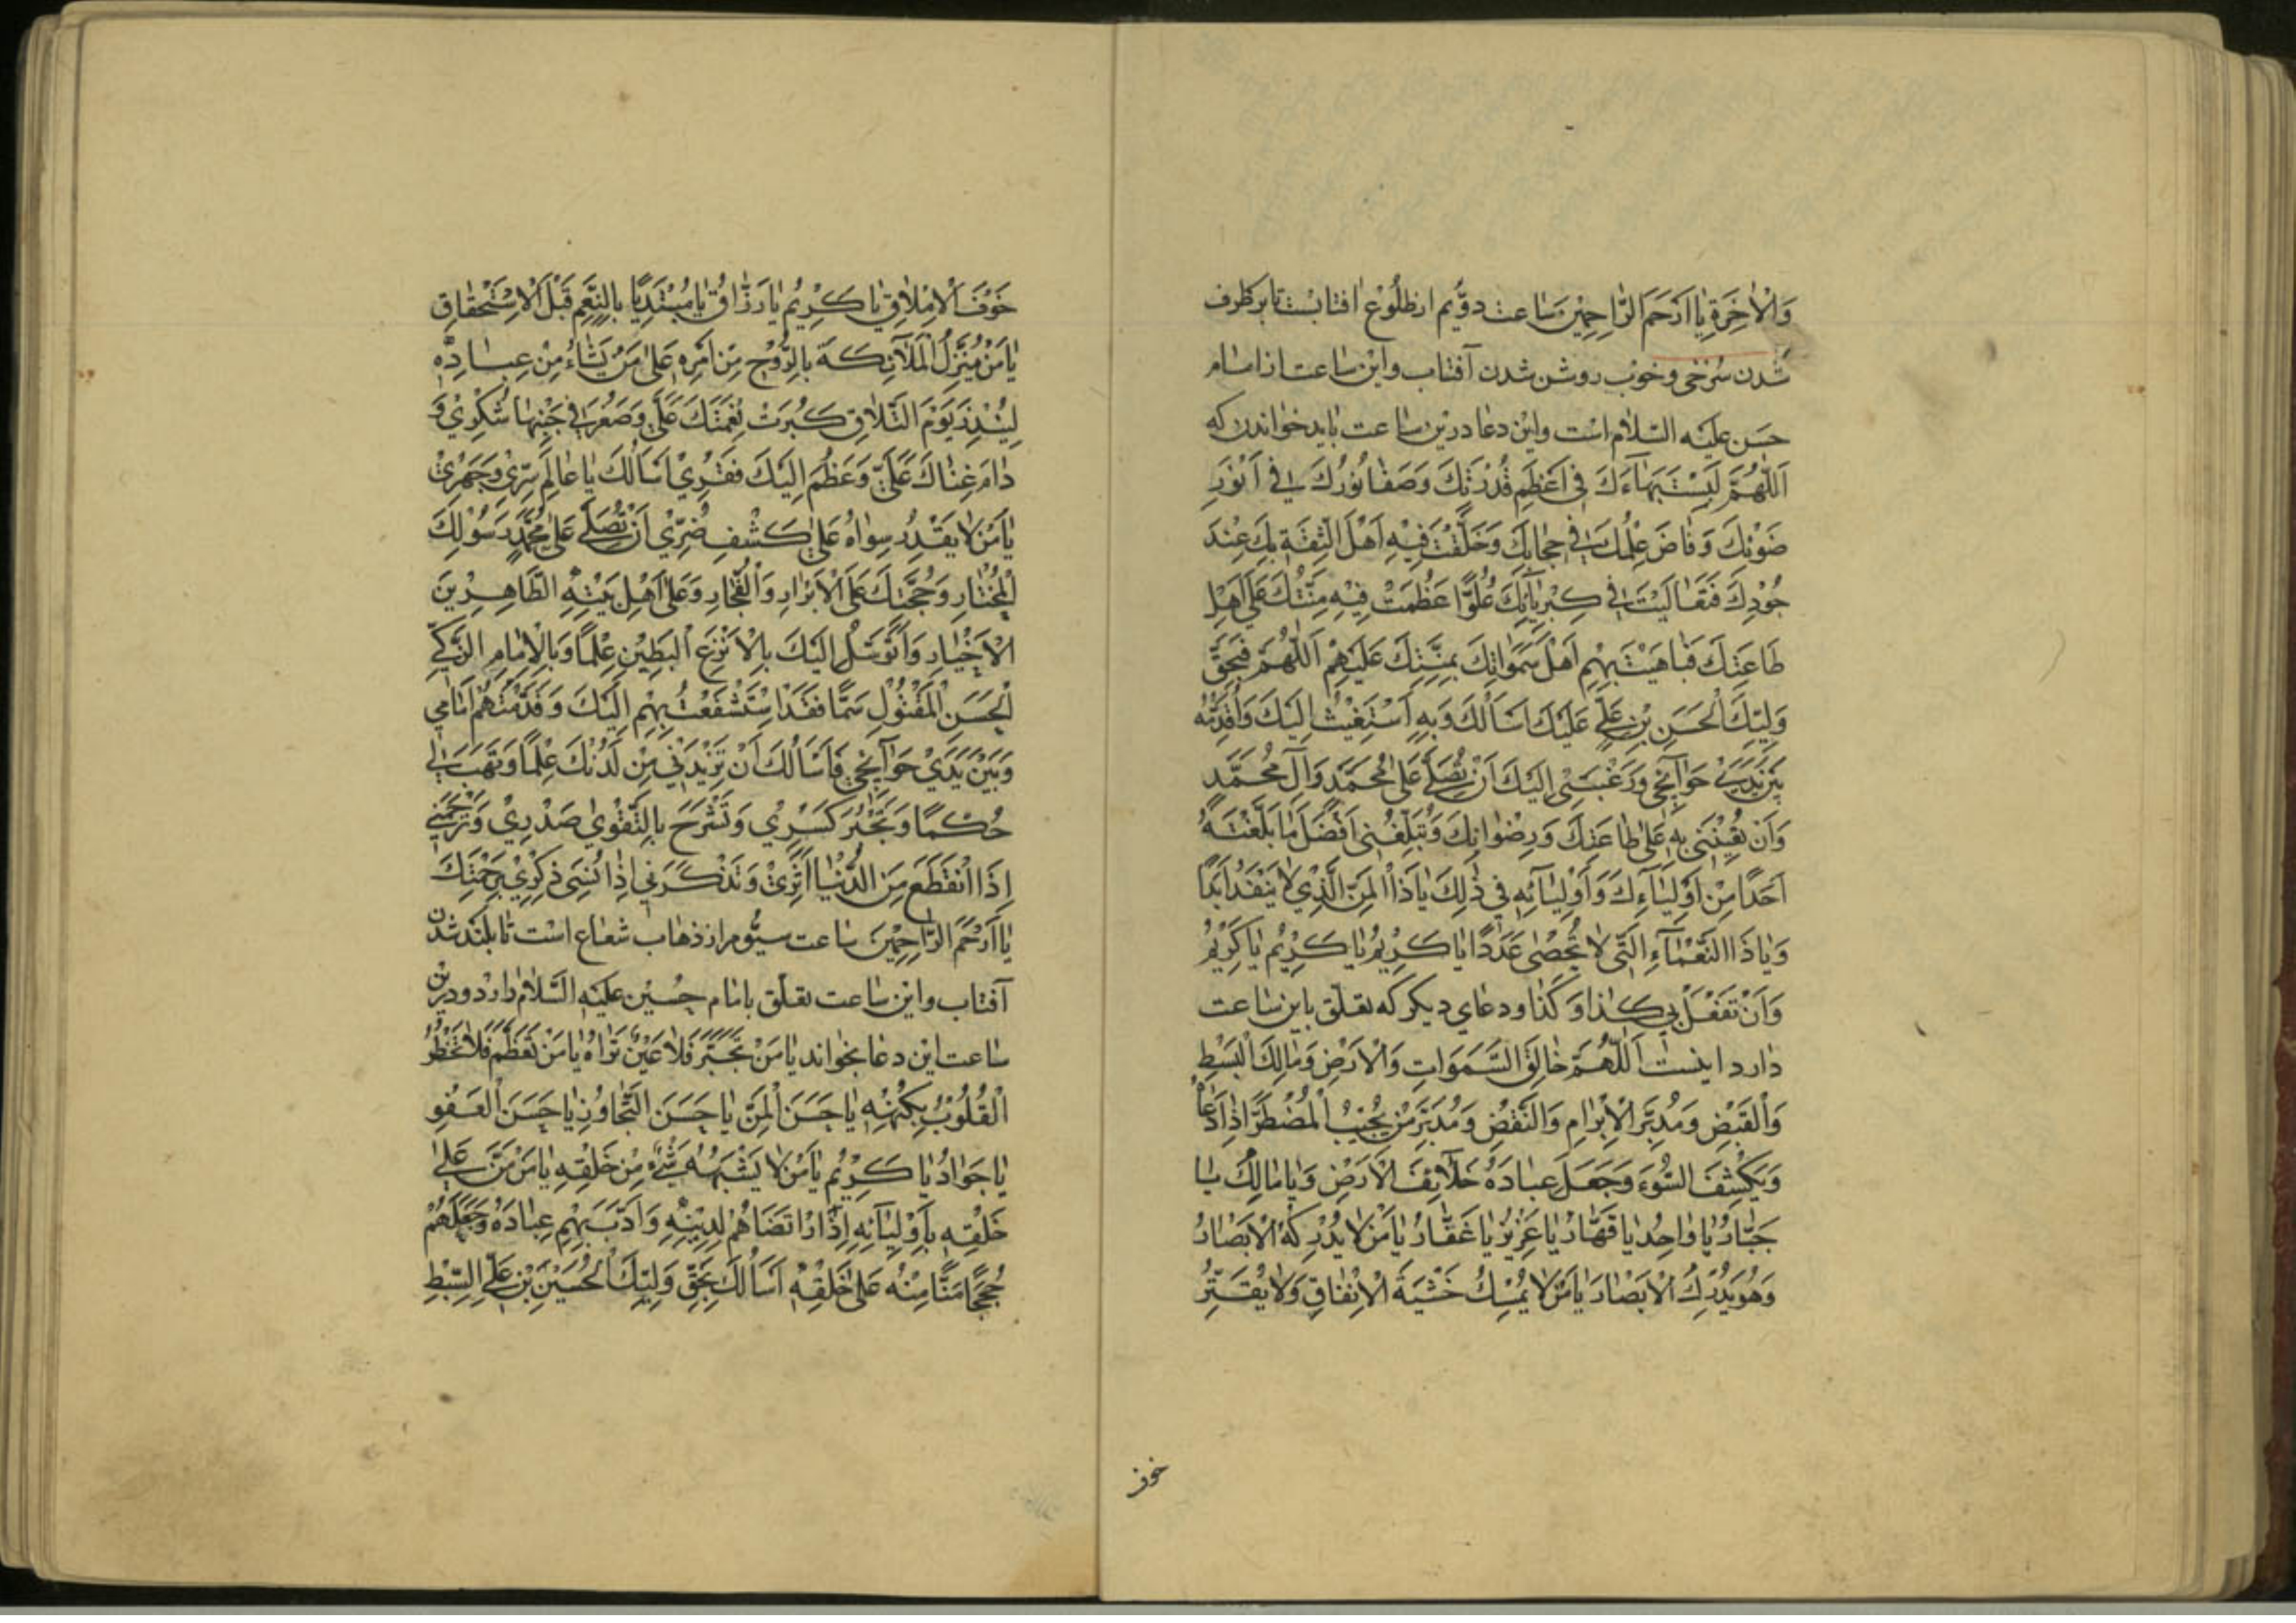 وَالْاٰخِرَةِ يٰا اَرْحَمَ الرّٰاحِمِيْنَ سٰاعت دوّيم ازطلُوْع افتابست تا برطرف
شدن سُرْخى وخوُب روشن شدن آفتاب واين سٰاعت از امٰام
حسَن عليَه السّلام است واين دعٰا درين سٰاعت بٰايد خواندن كه
اَللّٰهُمَّ لَبِسْتَ بَهٰآءَكَ فى اَعْظَمِ قُدْرَتِكَ وَصَفٰا نُوْرُكَ فى اَنْوَرِ
ضَوْئِكَ وَفٰاضَ عِلْمُكَ فى حِجٰابِكَ وَخَلَّقْتَ فيْهِ اَهْلَ الثِقَةِ بِكَ عِنْدَ
جُوْدِكَ فَتَعٰالَيْتَ فى كِبْرِيٰآئِكَ عُلُوًّا عَظُمَتْ فِيْهِ مِنَّتُكَ عَلىٰ اَهْلِ
طٰاعَتِكَ فَبٰاهَيْتَ بِهِمْ اَهْلَ سَمٰوٰاتِكَ بِمِنَّتِكَ عَلَيْهِمْ اَللّٰهُمَّ فَبِحَقِّ
وَلِيِّكَ الْحَسَنِ بْنِ عَلىٍّ عَلَيْكَ اَسْاَلُكَ وَبِهِ اَسْتَغيْثُ اِلَيْكَ وَاُقَدِّمُهُ
بَيْنَ يَدَىْ حَوٰآئِجى وَرَغْبَتى اِلَيْكَ اَنْ تُصَلِّىَ عَلىٰ مُحَمَّدٍ وَآلِ مُحَمَّدٍ
وَاَنْ تُعِيْنَنى بِهِ عَلىٰ طٰاعَتِكَ وَرِضْوٰانِكَ وَتُبَلِّغَنى اَفْضَلَ مٰا بَلَّغْتَهُ
اَحَدًا مِنْ اَوْلِيٰآءِكَ وَاَوْلِيٰآئِهِ فى ذٰلِكَ يٰا ذَا الْمَنِّ الَّذِىْ لٰا يَنْفَدُ اَبَدًا
وَيٰا ذَا النَّعْمٰآءِ الَّتى لٰا تُحْصٰى عَدَدًا يٰا كَرِيْمُ يٰا كَرِيْمُ يٰا كَرِيْمُ
وَاَنْ تَفْعَلَ بى كَذٰا وَكَذٰا ودعٰاى ديكر كه تعلّق باين سٰاعت
دٰارد اينست اَللّٰهُمَّ خٰالِقَ السَّمَوٰاتِ وَالْاَرْضِ وَمٰالِكَ الْبَسْطِ
وَالْقَبْضِ وَمُدَبِّرَ الْاِبْرٰامِ وَالنَّقْضِ وَمُدَبِّرَ مَنْ يُجيْبُ الْمُضْطَرَّ اِذٰا دَعٰاهُ
وَيَكْشِفُ السُّوْءَ وَجَعَلَ عِبٰادَهُ خَلٰآئِفَ الْاَرْضِ وَيٰا مٰالِكُ يٰا
جَبّٰارُ يٰا وٰاحِدُ يٰا قَهّٰارُ يٰا عَزِيْزُ يٰا غَفّٰارُ يٰا مَنْ لٰا يُدْرِكُهُ الْاَبْصٰارُ
وَهُوَ يُدْرِكُ الْاَبْصٰارَ يٰا مَنْ لٰا يُمْسِكُ خَشْيَةَ الْاِنْفٰاقِ وَلٰا يُقَتِّرُ
خوف
خَوْفَ الْاِمْلٰاقِ يٰا كَرِيْمُ يٰا رَزّٰاقُ يٰا مُبْتَدِيًا بِالنِّعَمِ قَبْلَ الْاِسْتِحْقٰاقِ
يٰا مَنْ يُنَزِّلُ الْمَلٰآئِكَةَ بِالرُّوْحِ مِنْ اَمْرِهِ عَلىٰ مَنْ يَشٰاءُ مِنْ عِبٰادِهِ
لِيُنْذِرَ يَوْمَ التَّلٰاقِ كَبُرَتْ نِعْمَتُكَ عَلَىَّ وَصَغُرَ فى جَنْبِهٰا شُكْرِيْ وَ
دٰامَ غِنٰاكَ عَلَىَّ وَعَظُمَ اِلَيْكَ فَقْرِيْ اَسْاَلُكَ يٰا عٰالِمَ سِرّى وَجَهْرِىْ
يٰا مَنْ لٰا يَقْدِرُ سِوٰاهُ عَلىٰ كَشْفِ ضُرّىْ اَنْ تُصَلِّىَ عَلىٰ مُحَمَّدٍ رَسُوْلِكَ
الْمُخْتٰارِ وَحُجَّتِكَ عَلَى الْاَبْرٰارِ وَالْفُجّٰارِ وَعَلىٰ اَهْلِ بَيْتِهِ الطّٰاهِرِيْنَ
الْاَخْيٰارِ وَاَتَوَسَّلُ اِلَيْكَ بِالْاَنْزَعِ الْبَطيْنِ عِلْمًا وَبِالْاِمٰامِ الزَّكِىِّ
الْحَسَنِ الْمَقْتُوْلِ سَمًّا فَقَدْ اِسْتَشْفَعْتُ بِهِمْ اِلَيْكَ وَقَدَّمْتُهُمْ اَمٰامى
وَبَيْنَ يَدَىْ حَوٰآئِجى فَاَسْاَلُكَ اَنْ تَزِيْدَنى مِنْ لَدُنْكَ عِلْمًا وَتَهَبَ لى
حُكْمًا وَتَجْبُرَ كَسْرِيْ وَتَشْرَحَ بِالتَّقْوىٰ صَدْرِيْ وَتَرْحَمَنى
اِذَا انْقَطَعَ مِنَ الدُّنْيٰا اَثَرِىْ وَتَذْكُرَنى اِذٰا نُسِىَ ذِكْرِيْ بِرَحْمَتِكَ
يٰا اَرْحَمَ الرّٰاحِمِيْنَ سٰاعت سيّوم از ذهٰاب شعٰاع است تٰا بلَند شدن
آفتاب واين سٰاعت تعلّق بامٰام حسين عليَه السَّلٰام دٰارد ودرين
سٰاعت اين دعٰا بخواند يٰا مَنْ تَجَبَّرَ فَلٰا عَيْنٌ تَرٰاهُ يٰا مَنْ تَعَظَّمَ فَلٰا تَخْطُرُ
الْقُلُوْبُ بِكُنْهِهِ يٰا حَسَنَ الْمَنِّ يٰا حَسَنَ التَّجٰاوُزِ يٰا حَسَنَ الْعَفْوِ
يٰا جَوٰادُ يٰا كَرِيْمُ يٰا مَنْ لٰا يَشْبَهُهُ شَىْءٌ مِنْ خَلْقِهِ يٰا مَنْ مَنَّ عَلىٰ
خَلْقِهِ بِاَوْلِيٰآئِهِ اِذِ ارْتَضٰاهُمْ لِدِيْنِهِ وَاَدَّبَ بِهِمْ عِبٰادَهُ وَجَعَلَهُمْ
حُجَجًا مَنًّا مِنْهُ عَلىٰ خَلْقِهِ اَسْاَلُكَ بِحَقِّ وَلِيِّكَ الْحُسَيْنِ بْنِ عَلِىٍّ السِّبْطِ